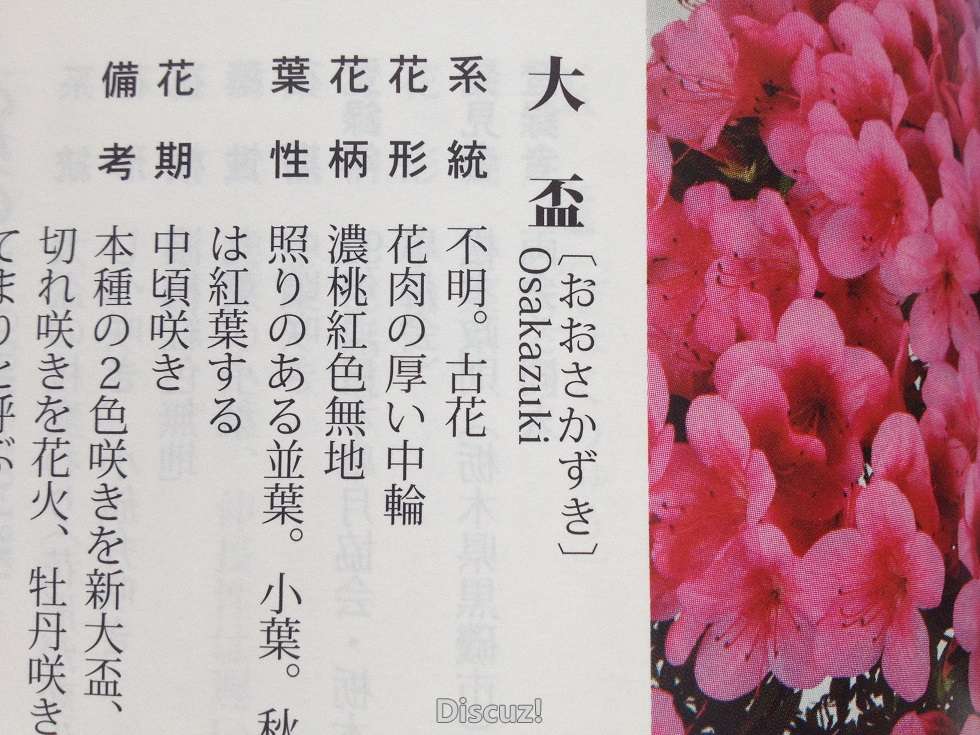 大盃〔おおさかずき〕
Osakazuki
系統 不明。古花
花形 花肉の厚い中輪
花柄 濃桃紅色無地
葉性 照りのある並葉。小葉。秋
は紅葉する
花期 中頃咲き
備考 本種の2色咲きを新大盃、
切れ咲きを花火、牡丹咲き
てまりと呼ぶ
Discuz!